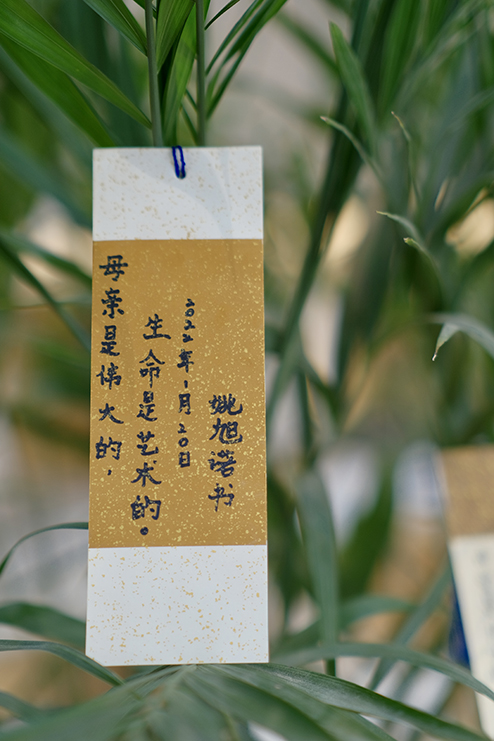 母亲是伟大的，
生命是艺术的。
2022年1月20日
姚旭诺书